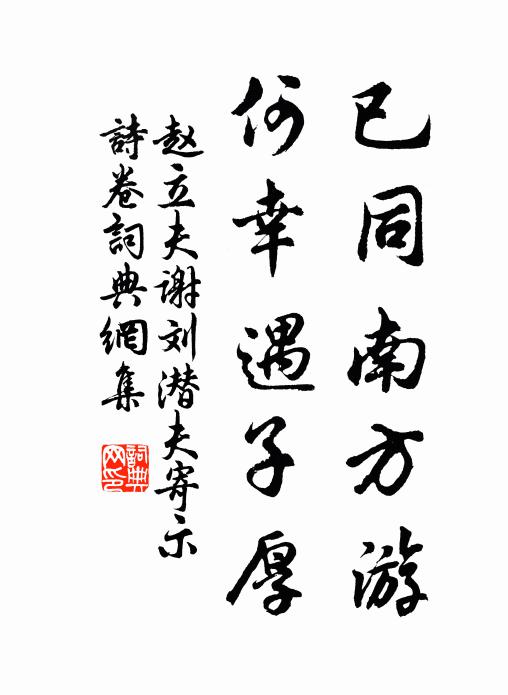 已同南方游
何幸遇子厚
赵立夫谢刘潜夫寄示
詩卷詞典網集
詞典网印